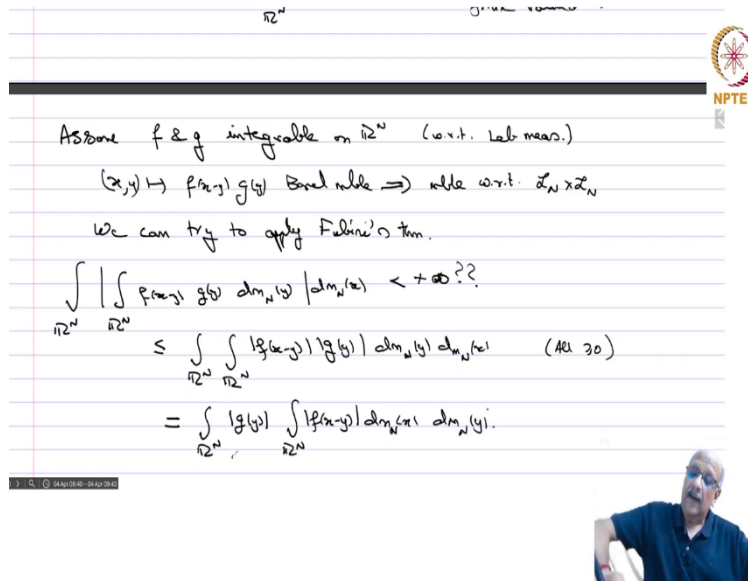 ℝᴺ
NPTE
Assume f & g integrable on ℝᴺ (w.r.t. Leb meas.)
(x,y) ↦ f(x-y) g(y) Borel mble ⇒ mble w.r.t. 𝓛_N × 𝓛_N
We can try to apply Fubini's thm.
∫_ℝᴺ | ∫_ℝᴺ f(x-y) g(y) dm_N(y) | dm_N(x) < +∞ ??
≤ ∫_ℝᴺ ∫_ℝᴺ |f(x-y)| |g(y)| dm_N(y) dm_N(x) (All ≥0)
= ∫_ℝᴺ |g(y)| ∫_ℝᴺ |f(x-y)| dm_N(x) dm_N(y).
04 Apr 09:40 - 04 Apr 09:43